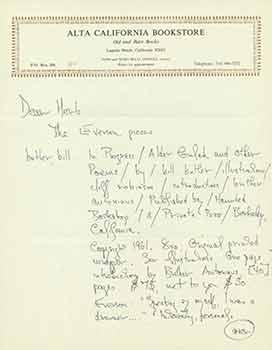 ALTA CALIFORNIA BOOKSTORE
Old and Rare Books
Laguna Beach, California 92652
P.O. Box 296
Telephone: 714 494-5252
Dear Herb
The Everson pieces
butler bill In Progress / Alder Gulch and other
Poems / by / bill butler / illustration /
cliff robinson / introduction / brother
antoninus / Published by / Haunted
Bookshop / & / Private Press / Berkeley,
California.
Copyright 1961. 8vo. Original printed
wrapper. Four illustrations One page
introduction by Brother Antoninus, [40]
pages $75, net to you $50
Everson "Speaking of myself, I was a
dreamer...." Nicely, personal.